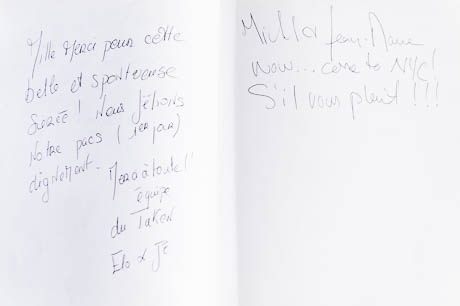 Mille Merci pour cette
belle et spontanée
Soirée ! Nous fêtions
Notre pacs (1er jour)
dignement.
Merci à toute l'
équipe
du Taken
Elo & Jé
Jean-Marie
wow... come to NYC!
S'il vous plait !!!